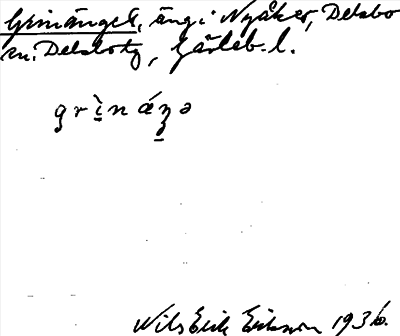 Grinänget, äng i Nyåker, Delsbo
sn. Delsbotg, Gävleb. l.
grìnáŋə
Nils Erik Eriksson 1936.